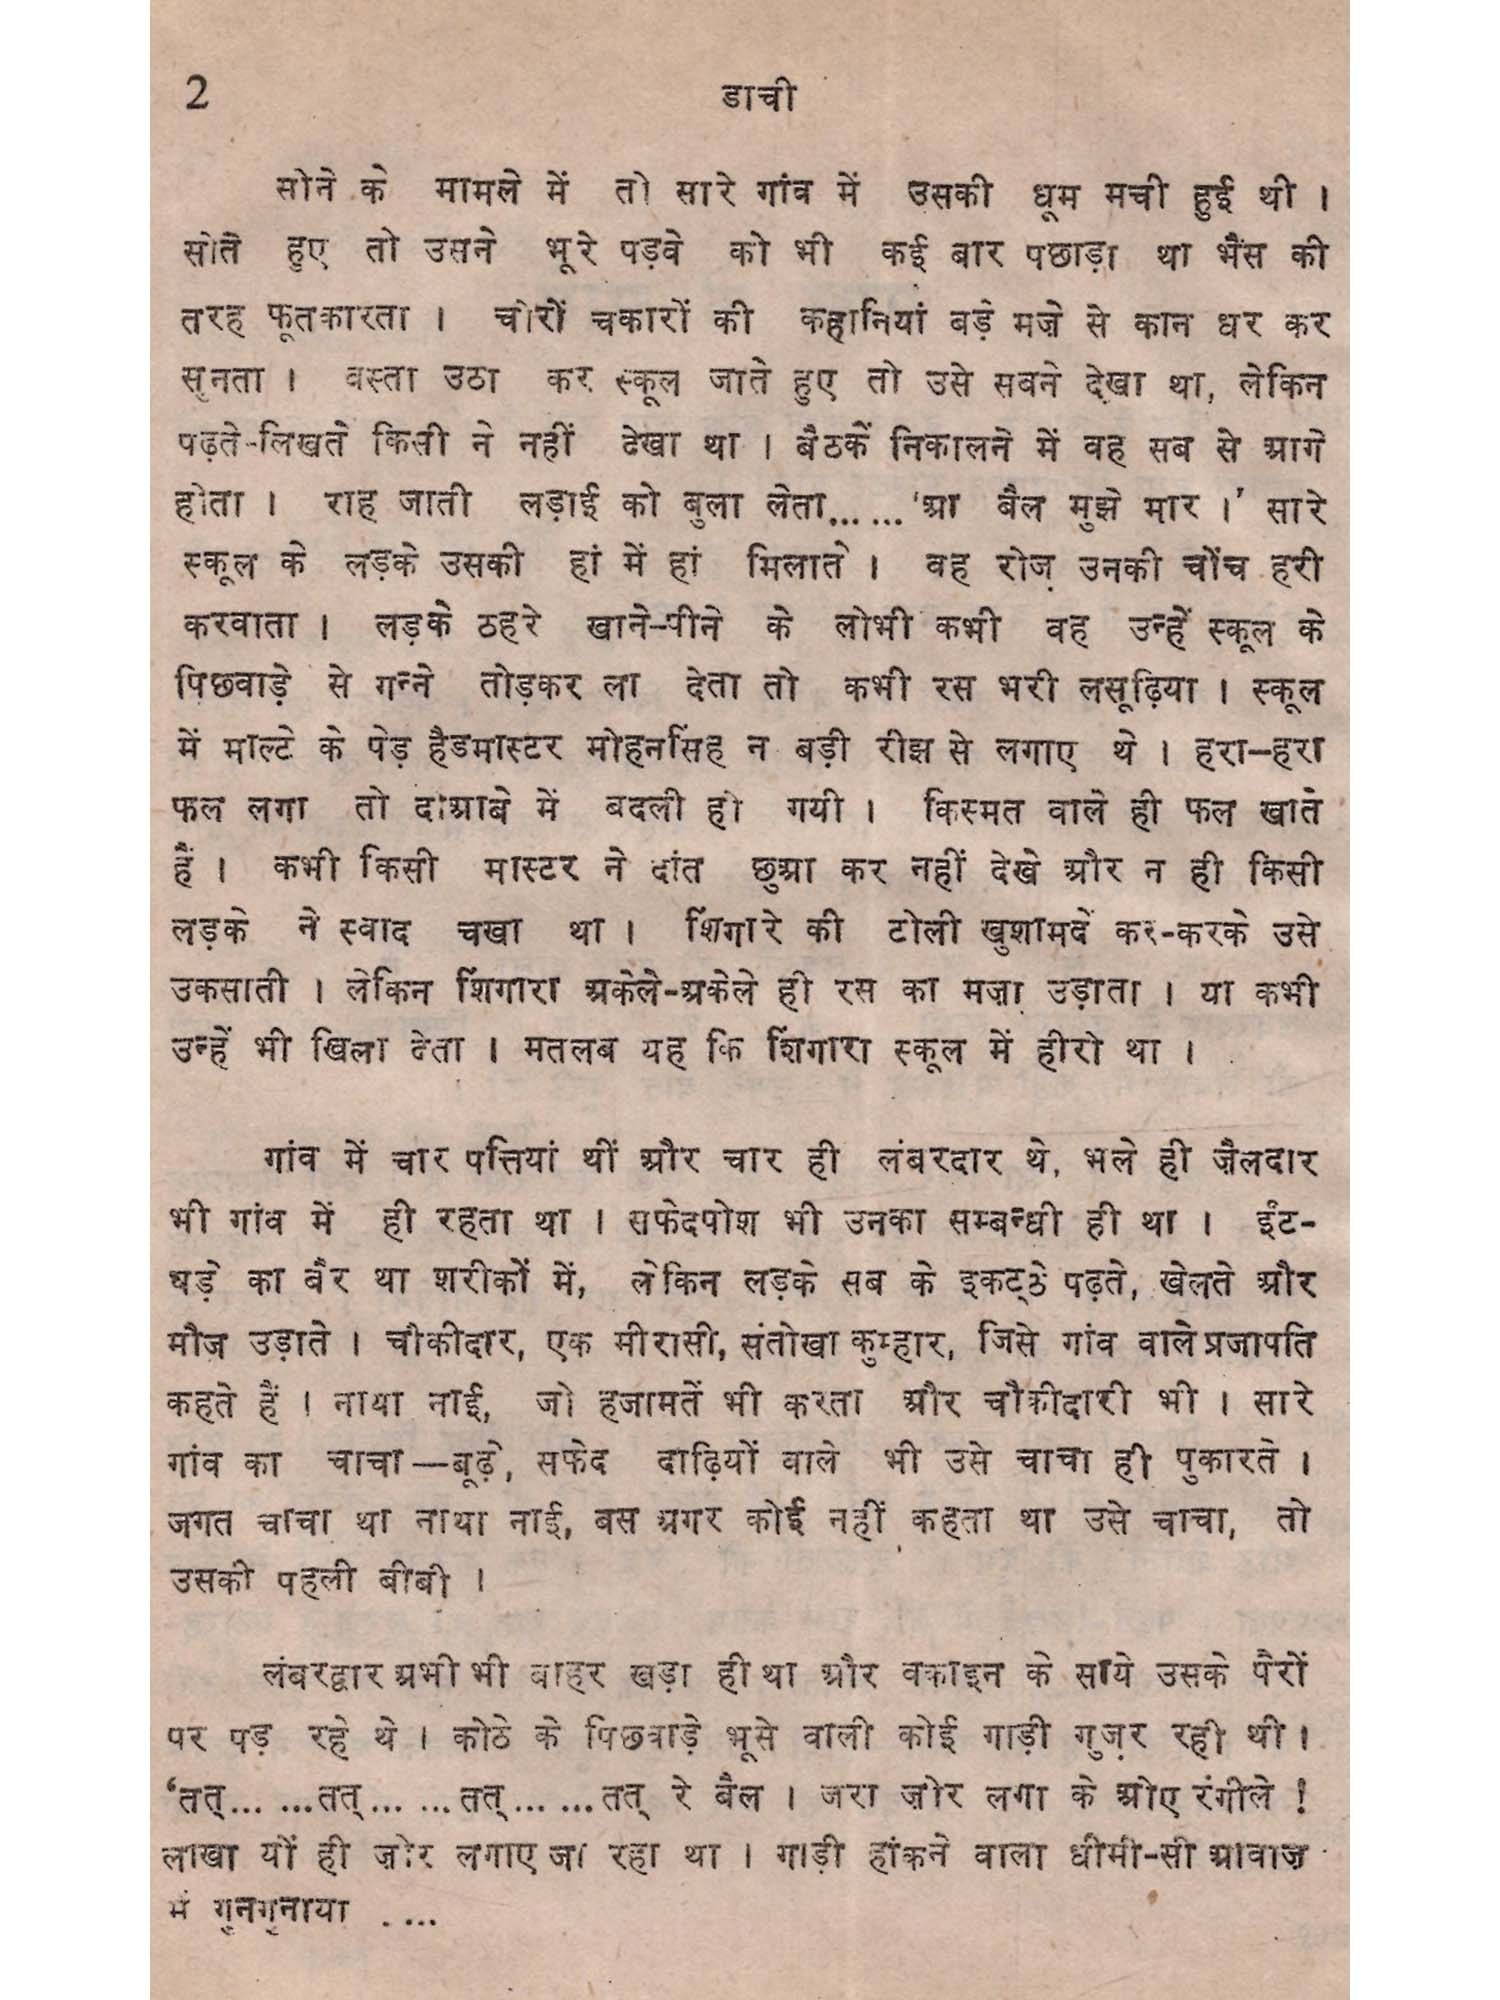 2 डाची
सोने के मामले में तो सारे गांव में उसकी धूम मची हुई थी ।
सोते हुए तो उसने भूरे पड़वे को भी कई बार पछाड़ा था भैंस की
तरह फूतकारता । चोरों चकारों की कहानियां बड़े मज़े से कान धर कर
सुनता । बस्ता उठा कर स्कूल जाते हुए तो उसे सबने देखा था, लेकिन
पढ़ते-लिखते किसी ने नहीं देखा था । बैठकें निकालने में वह सब से आगे
होता । राह जाती लड़ाई को बुला लेता... ...‘आ बैल मुझे मार ।’ सारे
स्कूल के लड़के उसकी हां में हां मिलाते । वह रोज़ उनकी चोंच हरी
करवाता । लड़के ठहरे खाने-पीने के लोभी कभी वह उन्हें स्कूल के
पिछवाड़े से गन्ने तोड़कर ला देता तो कभी रस भरी लसूढ़िया । स्कूल
में माल्टे के पेड़ हैडमास्टर मोहनसिंह न बड़ी रीझ से लगाए थे । हरा-हरा
फल लगा तो दोआबे में बदली हो गयी । किस्मत वाले ही फल खाते
हैं । कभी किसी मास्टर ने दांत छुआ कर नहीं देखे और न ही किसी
लड़के ने स्वाद चखा था । शिंगारे की टोली खुशामदें कर-करके उसे
उकसाती । लेकिन शिंगारा अकेले-अकेले ही रस का मज़ा उड़ाता । या कभी
उन्हें भी खिला देता । मतलब यह कि शिंगारा स्कूल में हीरो था ।
गांव में चार पत्तियां थीं और चार ही लंबरदार थे, भले ही ज़ैलदार
भी गांव में ही रहता था । सफेदपोश भी उनका सम्बन्धी ही था । ईंट-
धड़े का बैर था शरीकों में, लेकिन लड़के सब के इकट्ठे पढ़ते, खेलते और
मौज उड़ाते । चौकीदार, एक मीरासी, संतोखा कुम्हार, जिसे गांव वाले प्रजापति
कहते हैं । नाथा नाई, जो हजामतें भी करता और चौकीदारी भी । सारे
गांव का चाचा—बूढ़े, सफेद दाढ़ियों वाले भी उसे चाचा ही पुकारते ।
जगत चाचा था नाथा नाई, बस अगर कोई नहीं कहता था उसे चाचा, तो
उसकी पहली बीबी ।
लंबरद्वार अभी भी बाहर खड़ा ही था और वकाइन के साये उसके पैरों
पर पड़ रहे थे । कोठे के पिछवाड़े भूसे वाली कोई गाड़ी गुज़र रही थी ।
‘तत्... ...तत्... ...तत्... ...तत् रे बैल । जरा ज़ोर लगा के ओए रंगीले !
लाखा यों ही ज़ोर लगाए जा रहा था । गाड़ी हांकने वाला धीमी-सी आवाज़
में गुनगुनाया . ...